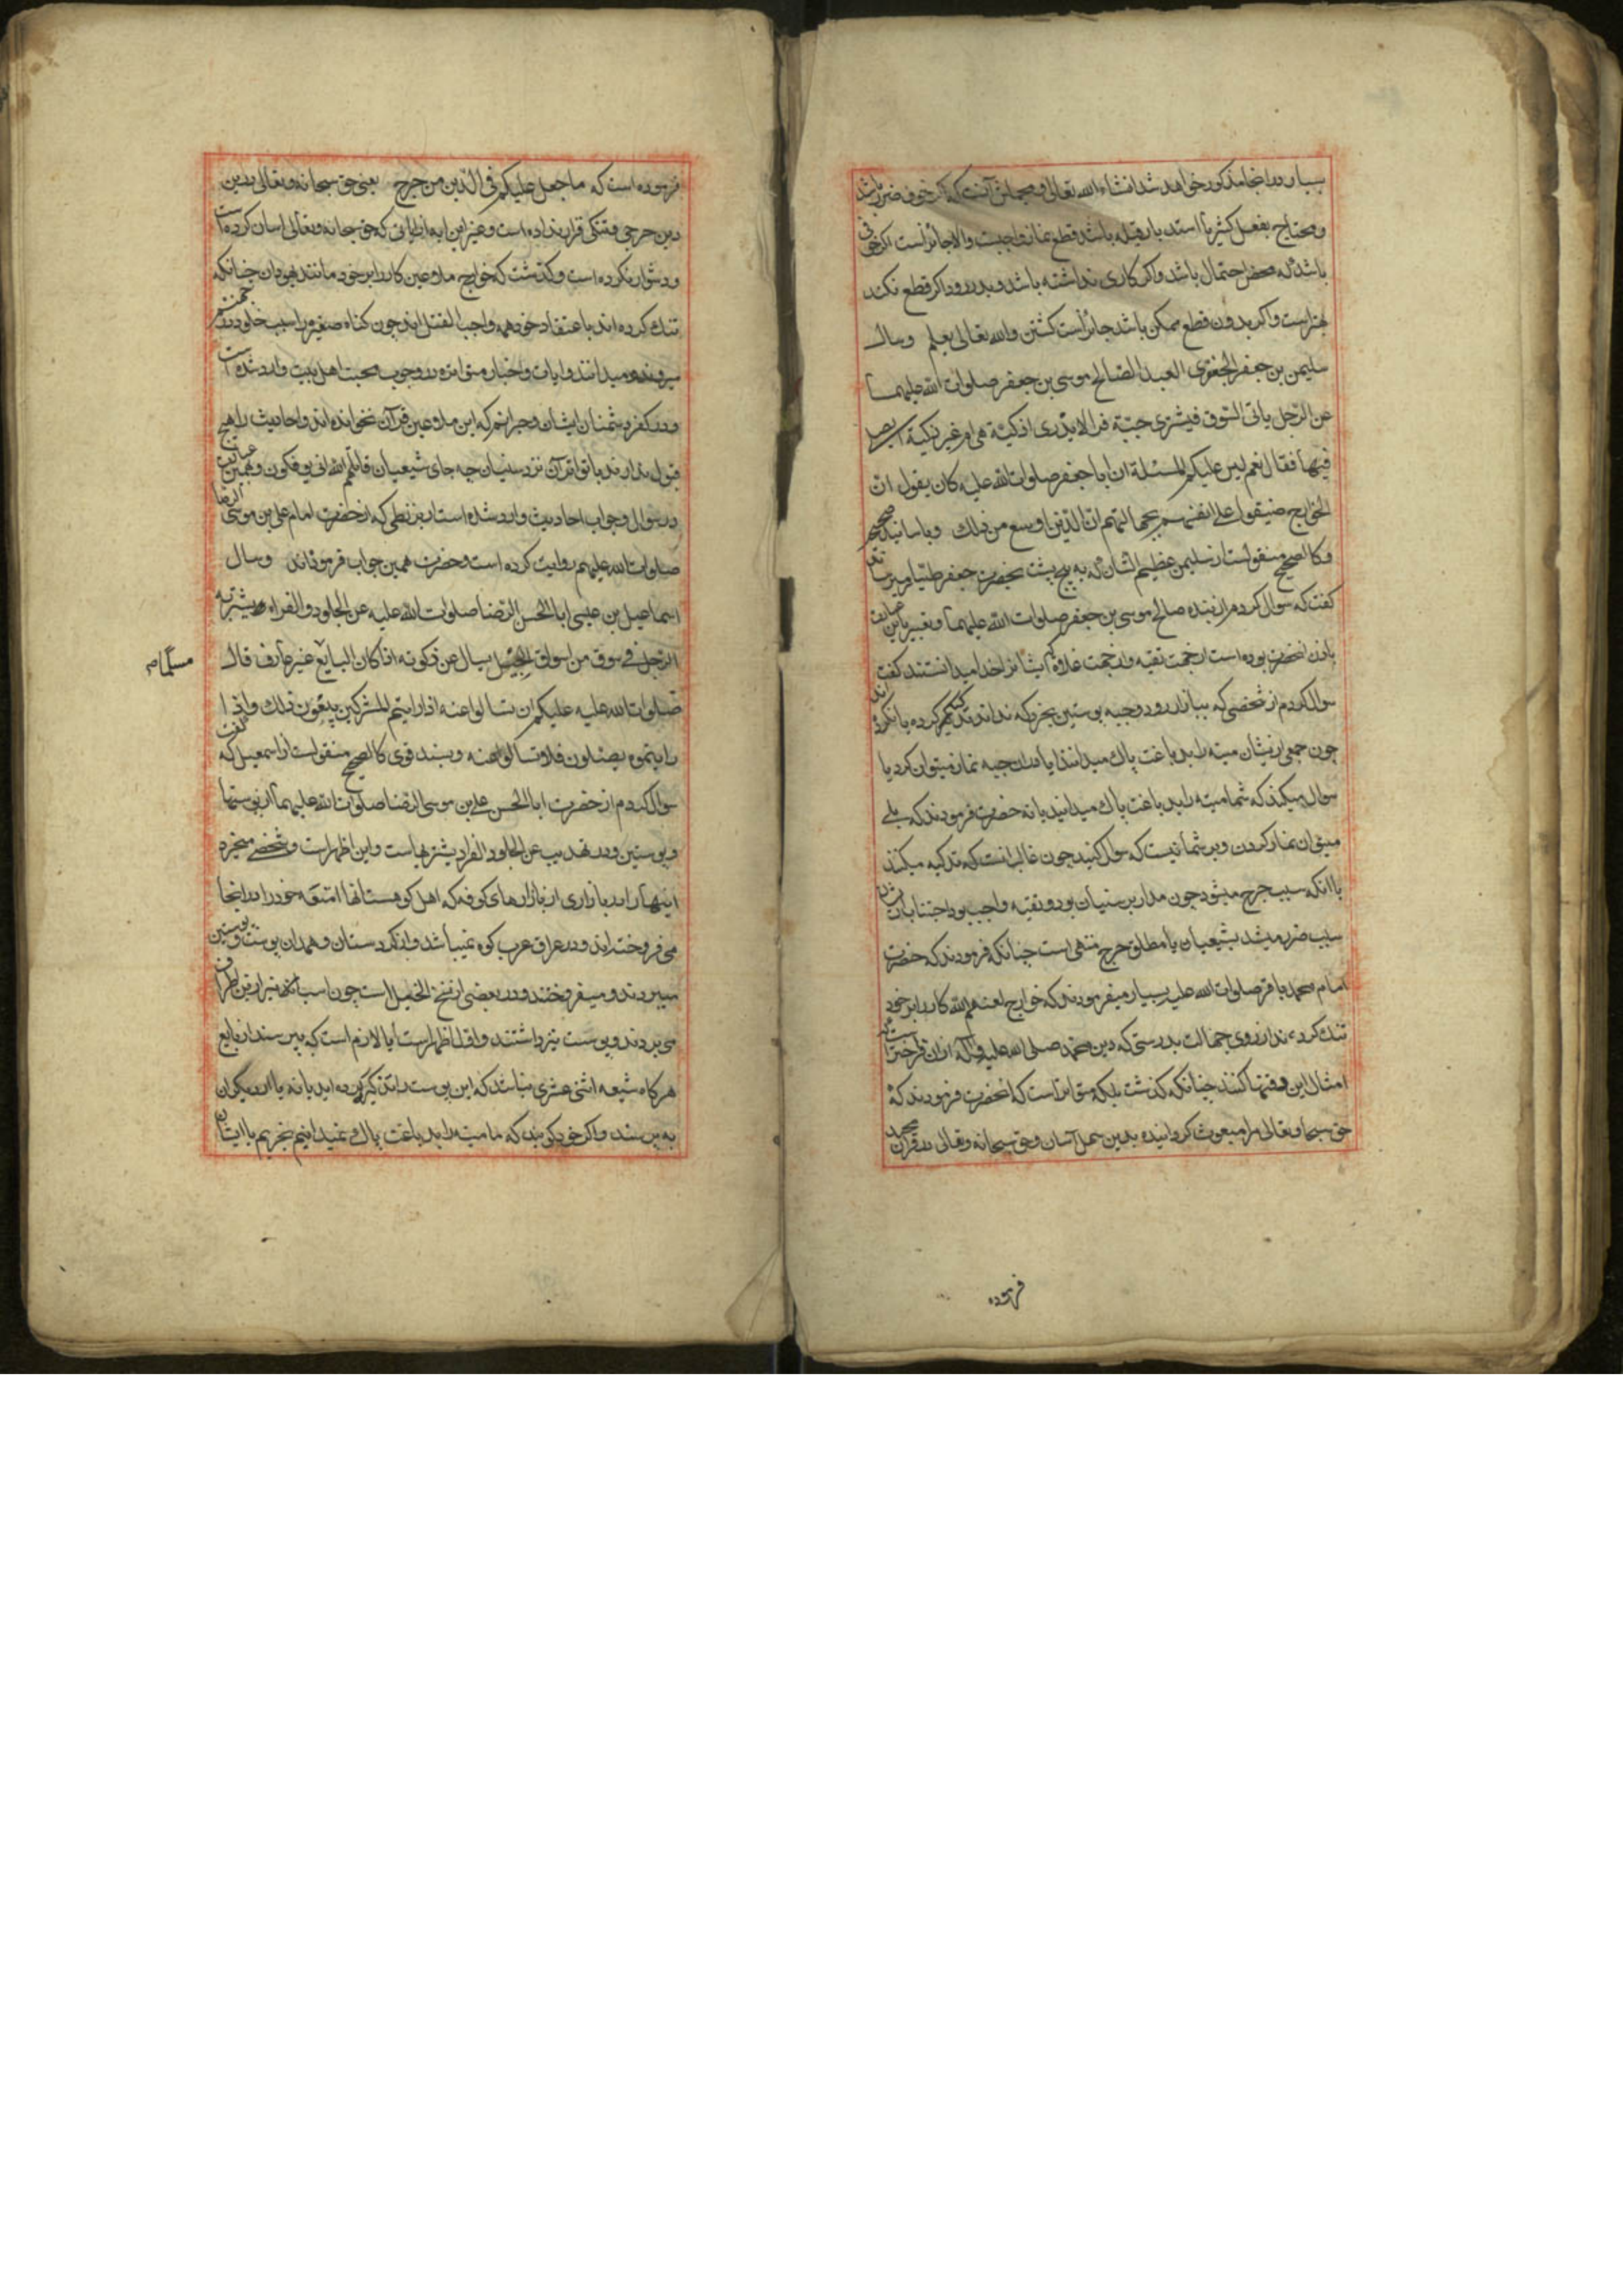 بسیار در اینجا مذکور خواهد شد انشاء الله تعالی و مجملش آنست که اگر خوف ضرر باشد
و محتاج بفعل کثیر یا استدبار قبله باشد قطع نماز واجبست والا جائز است اگر خوفی
باشد که محض احتمال باشد و اگر کاری نداشته باشد و بدر رود اگر قطع نکند
بهتر است و اگر بدون قطع ممکن باشد جائز است کشتن والله تعالی یعلم وسال
سلیمن بن جعفر الجعفری العبد الصالح موسی بن جعفر صلوات الله علیهما
عن الرجل یاتی السوق فیشتری جبّة فرا لا یدری اذکیّة هی ام غیر ذکیة ایصلی
فیها فقال نعم لیس علیکم المسئلة ان ابا جعفر صلوات الله علیه کان یقول ان
الخوارج ضیقوا علی انفسهم بجهالتهم انّ الدّین اوسع من ذلک و باسانید صحیحه
و کالصحیح منقولست از سلیمن عظیم الشان که به پنج پشت بحضرت جعفر طیّار میرساند
گفت که سوال کردم از بنده صالح موسی بن جعفر صلوات الله علیهما و تعبیر باین عبارت
باذن انحضرت بوده است از جهت تقیه و از جهت غلاة که ایشانرا خدا میدانستند گفت
سوال کردم از شخصی که ببازار رود و جبه پوستین بخرد که نداند تذکیه‌اش کرده‌اند یا نکرده
چون جمعی از سنیان میته را بدباغت پاک میدانند ایا دران جبه نماز میتوان کرد یا
سوال میکند که شما میته را بدباغت پاک میدانید یا نه حضرت فرمودند که بلی
میتوان نماز کردن و بر شما نیست که سوال کنید چون غالب انست که تذکیه میکنند
با انکه سبب حرج میشود چون مدار بر سنیان بود و تقیه واجب بود و اجتناب از ایشان
سبب ضرر میشد بشیعیان یا مطلق حرج منتفی است چنانکه فرمودند که حضرت
امام محمد باقر صلوات الله علیه بسیار میفرمودند که خوارج لعنهم الله کار را بر خود
تنک کرده‌اند از روی جهالت بدرستی که دین محمد صلی الله علیه و آله ازان فراختر است که
امثال این وقتها کنند چنانکه گذشت بلکه متواتر است که انحضرت فرمودند که
حق سبحانه و تعالی مرا مبعوث گردانیده بدین سهل آسان و حق سبحانه و تعالی در قرآن مجید
فرموده
فرموده است که ما جعل علیکم فی الدّین من حرج یعنی حق سبحانه و تعالی در این
دین حرجی و تنکی قرار نداده است و غیر این ایه از ایاتی که حق سبحانه و تعالی اسان کرده است
و دشوار نکرده است و گذشت که خوارج ملاعین کار را بر خود مانند یهودان چنانکه
تنک کرده‌اند باعتقاد خود همه واجب القتل‌اند چون کناه صغیره را سبب خلود در جهنم
میدانند و ایات و اخبار متواتره در وجوب محبت اهل بیت وارد شده است
و در کفر دشمنان ایشان و جزائم که این ملاعین قرآن نخوانده‌اند و احادیث را هیچ
قبول ندارند با تواتر آن نزد سنیان چه جای شیعیان قاتلهم الله انی یوفکون و بهمین عبارت
در سوال و جواب احادیث وارد شده است از بزنطی که از حضرت امام علی بن موسی الرضا
صلوات الله علیهم روایت کرده است و حضرت همین جواب فرموده‌اند وسال
اسماعیل بن عیسی ابا الحسن الرّضا صلوات الله علیه عن الجلود والفراء یشتریه
الرّجل فی سوق من اسواق الجبل یسال عن ذکوته اذا کان البایع غیر عارف قال
مسلماً م
صلوات الله علیه علیکم ان تسالوا عنه اذا رایتم المشرکین یبیعون ذلک واذا
رایتموهم یصلون فلا تسالوا عنه و بسند قوی کالصحیح منقولست از اسمعیل که گفت
سوال کردم از حضرت ابا الحسن علی بن موسی الرّضا صلوات الله علیهما از پوستها
و پوستین و در تهذیب عن الجلود الفرا یشتریها است و این اظهر است و شخصی میخرد
اینها را در بازاری از بازارهای کوفه که اهل کوهستانها امتعه خود را در انجا
می فروخته‌اند و در عراق عرب کوه نمیباشد و از کردستان و همدان پوست و پوستین
میبردند و میفروختند و در بعضی از نسخ الخیل است چون اسب
می بردند و پوست نیز داشتند و اوّل اظهر است ایا لازم است که بپرسند از بایع
هر گاه شیعه اثنی عشری نباشد که این پوست را تذکیه کرده‌اید یا نه یا از دیکران
به پرسند و اگر خود گویند که ما میته را بدباغت پاک نمیدانیم بخریم با ایشان